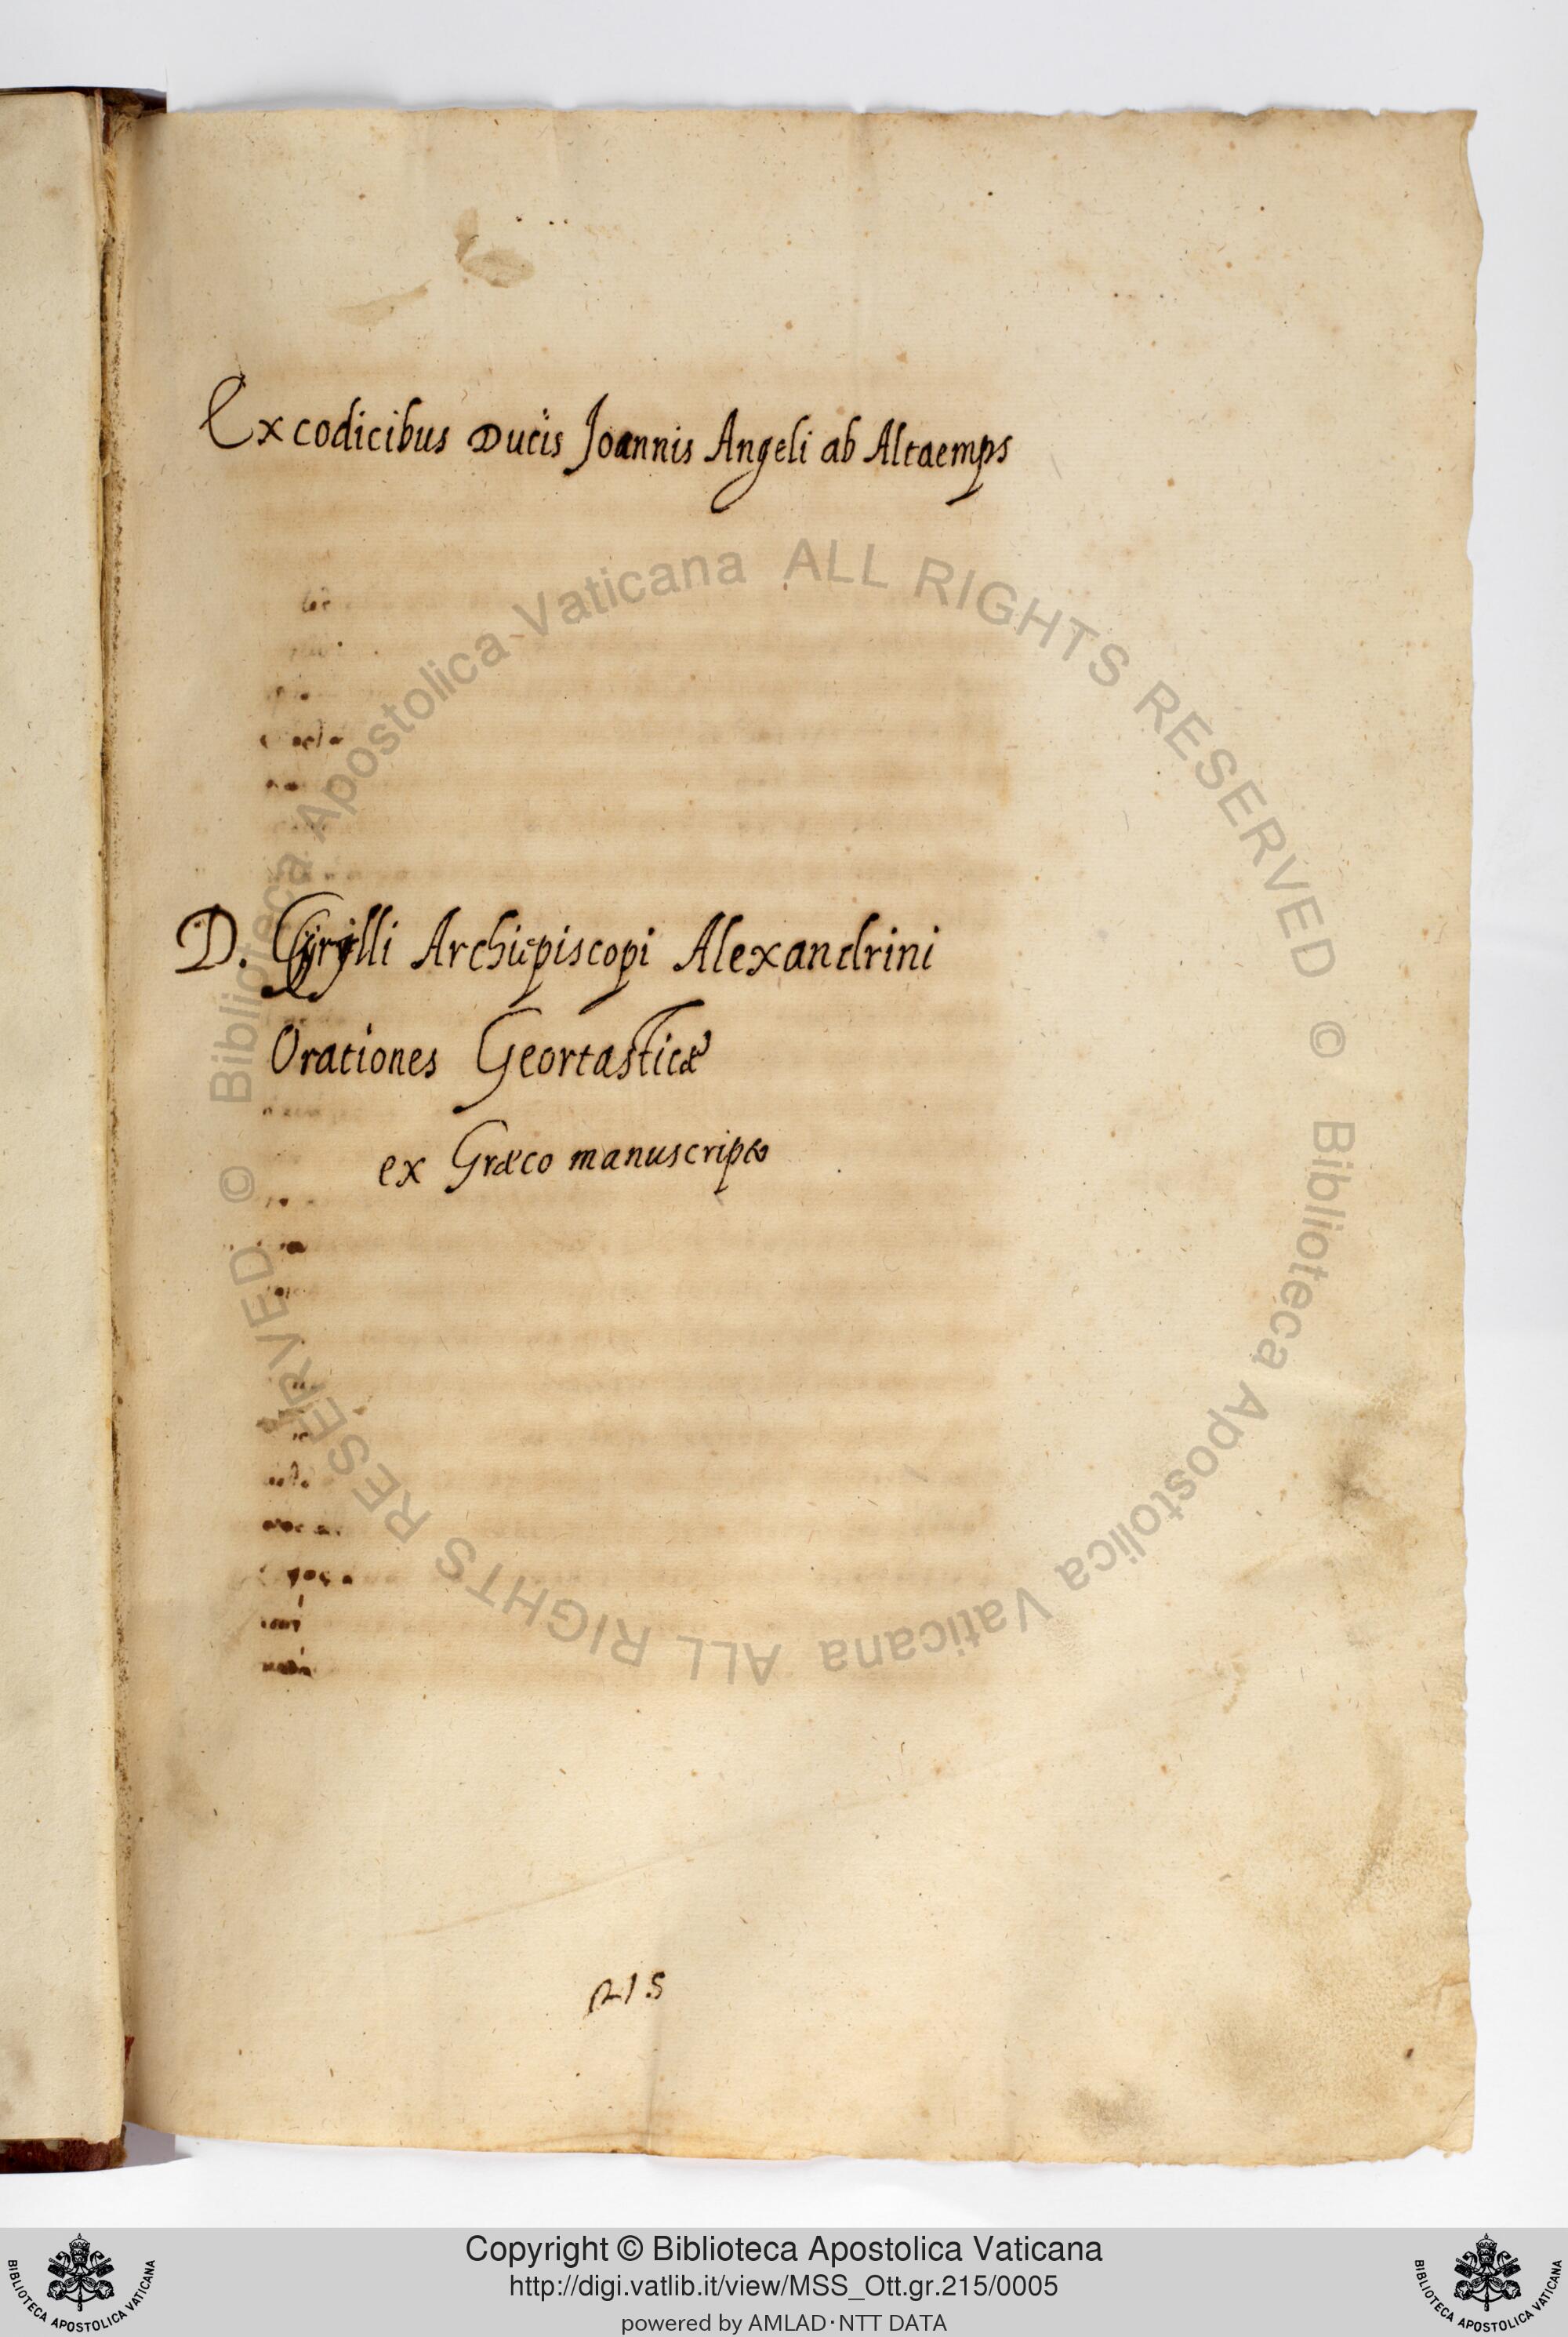 Ex codicibus Ducis Joannis Angeli ab Altaemps
D. Cyrilli Archiepiscopi Alexandrini
Orationes Geortasticæ
ex Græco manuscripto
215
© Biblioteca Apostolica Vaticana ALL RIGHTS RESERVED
© Biblioteca Apostolica Vaticana ALL RIGHTS RESERVED
Copyright © Biblioteca Apostolica Vaticana
http://digi.vatlib.it/view/MSS_Ott.gr.215/0005
powered by AMLAD·NTT DATA
BIBLIOTECA APOSTOLICA VATICANA
BIBLIOTECA APOSTOLICA VATICANA